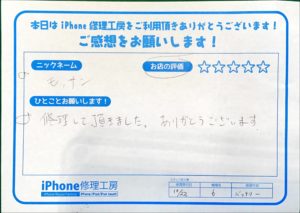 本日は iPhone 修理工房をご利用頂きありがとうございます!
ご感想をお願いします!
ニックネーム
お店の評価 ☆☆☆☆☆
モッチン
ひとことお願いします!
修理して頂きました。ありがとうございます
iPhone修理工房
6
バッテリー